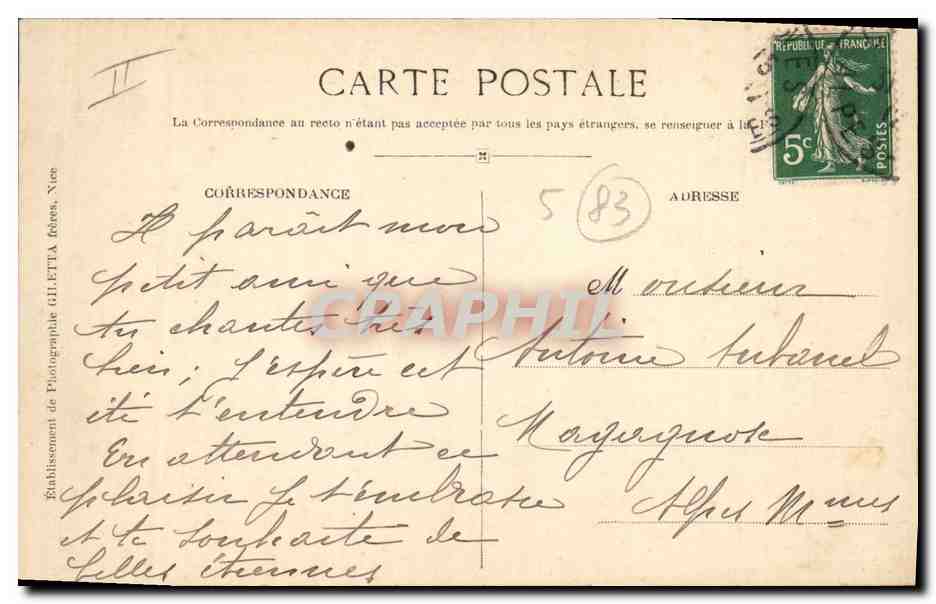 II
CARTE POSTALE
La Correspondance au recto n'étant pas acceptée par tous les pays étrangers, se renseigner à la
REPUBLIQUE FRANÇAISE
5c
POSTES
CORRESPONDANCE
Il paraît mon
petit ami que
tu chantes très
bien; j'espère cet
été t'entendre
En attendant ce
plaisir je t'embrasse
et te souhaite de
belles étrennes
5 83
ADRESSE
Monsieur
Antoine Aubanel
Magagnosc
Alpes Mmes
Établissement de Photographie GILETTA frères, Nice
CPAPHIL